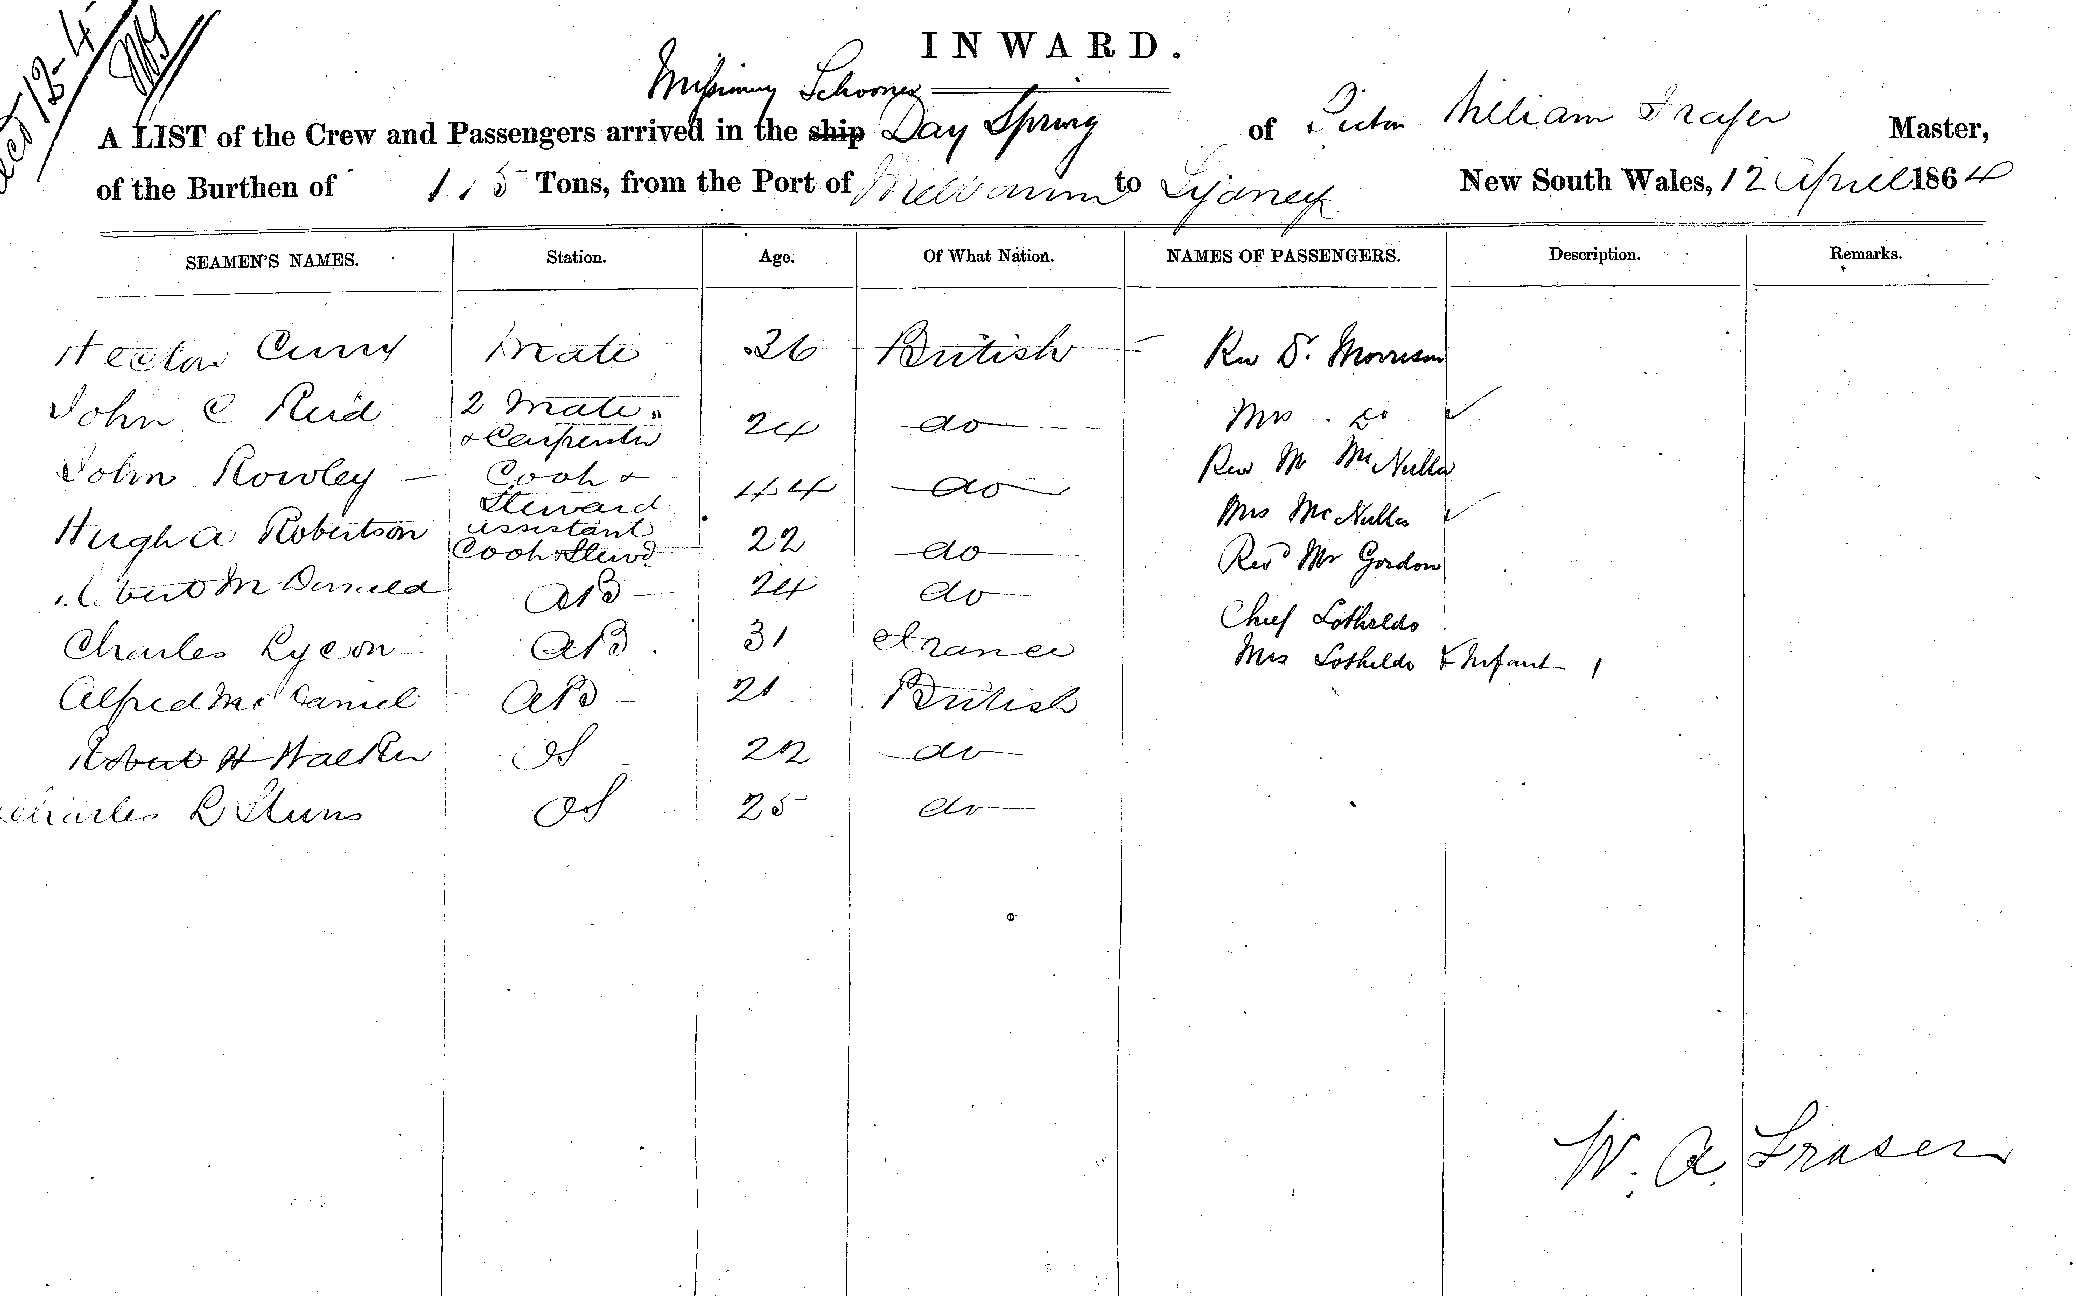 12-4
INWARD.
Missionary Schooner
A LIST of the Crew and Passengers arrived in the ship Day Spring of Pictou William Fraser Master,
of the Burthen of 115 Tons, from the Port of Melbourne to Sydney New South Wales, 12 April 1864
SEAMEN'S NAMES. Station. Age. Of What Nation. NAMES OF PASSENGERS. Description. Remarks.
Hector Curry Mate 36 British Rev D. Morrison
John C Reid 2 Mate & Carpenter 24 do Mrs Do
John Rowley Cook & Steward 44 do Rev Mr McNulla
Hugh A Robertson assistant Cook & Stewd 22 do Mrs McNulla
Robert McDaniel AB 24 do Revd Mr Gordon
Charles Lycon AB 31 France Chief Lotheldo
Alfred McDaniel AB 21 British Mrs Lotheldo & Infant 1
Robert H Walker OS 22 do
Charles L Sterns OS 25 do
W. A. Fraser